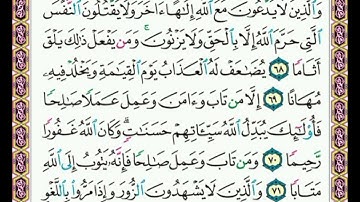 وَٱلَّذِينَ لَا يَدْعُونَ مَعَ ٱللَّهِ إِلَٰهًا ءَاخَرَ وَلَا يَقْتُلُونَ ٱلنَّفْسَ
ٱلَّتِي حَرَّمَ ٱللَّهُ إِلَّا بِٱلْحَقِّ وَلَا يَزْنُونَۚ وَمَن يَفْعَلْ ذَٰلِكَ يَلْقَ
أَثَامًا ٦٨ يُضَٰعَفْ لَهُ ٱلْعَذَابُ يَوْمَ ٱلْقِيَٰمَةِ وَيَخْلُدْ فِيهِۦ
مُهَانًا ٦٩ إِلَّا مَن تَابَ وَءَامَنَ وَعَمِلَ عَمَلًا صَٰلِحًا
فَأُو۟لَٰٓئِكَ يُبَدِّلُ ٱللَّهُ سَيِّـَٔاتِهِمْ حَسَنَٰتٍۗ وَكَانَ ٱللَّهُ غَفُورًا
رَّحِيمًا ٧٠ وَمَن تَابَ وَعَمِلَ صَٰلِحًا فَإِنَّهُۥ يَتُوبُ إِلَى ٱللَّهِ
مَتَابًا ٧١ وَٱلَّذِينَ لَا يَشْهَدُونَ ٱلزُّورَ وَإِذَا مَرُّوا۟ بِٱللَّغْوِ